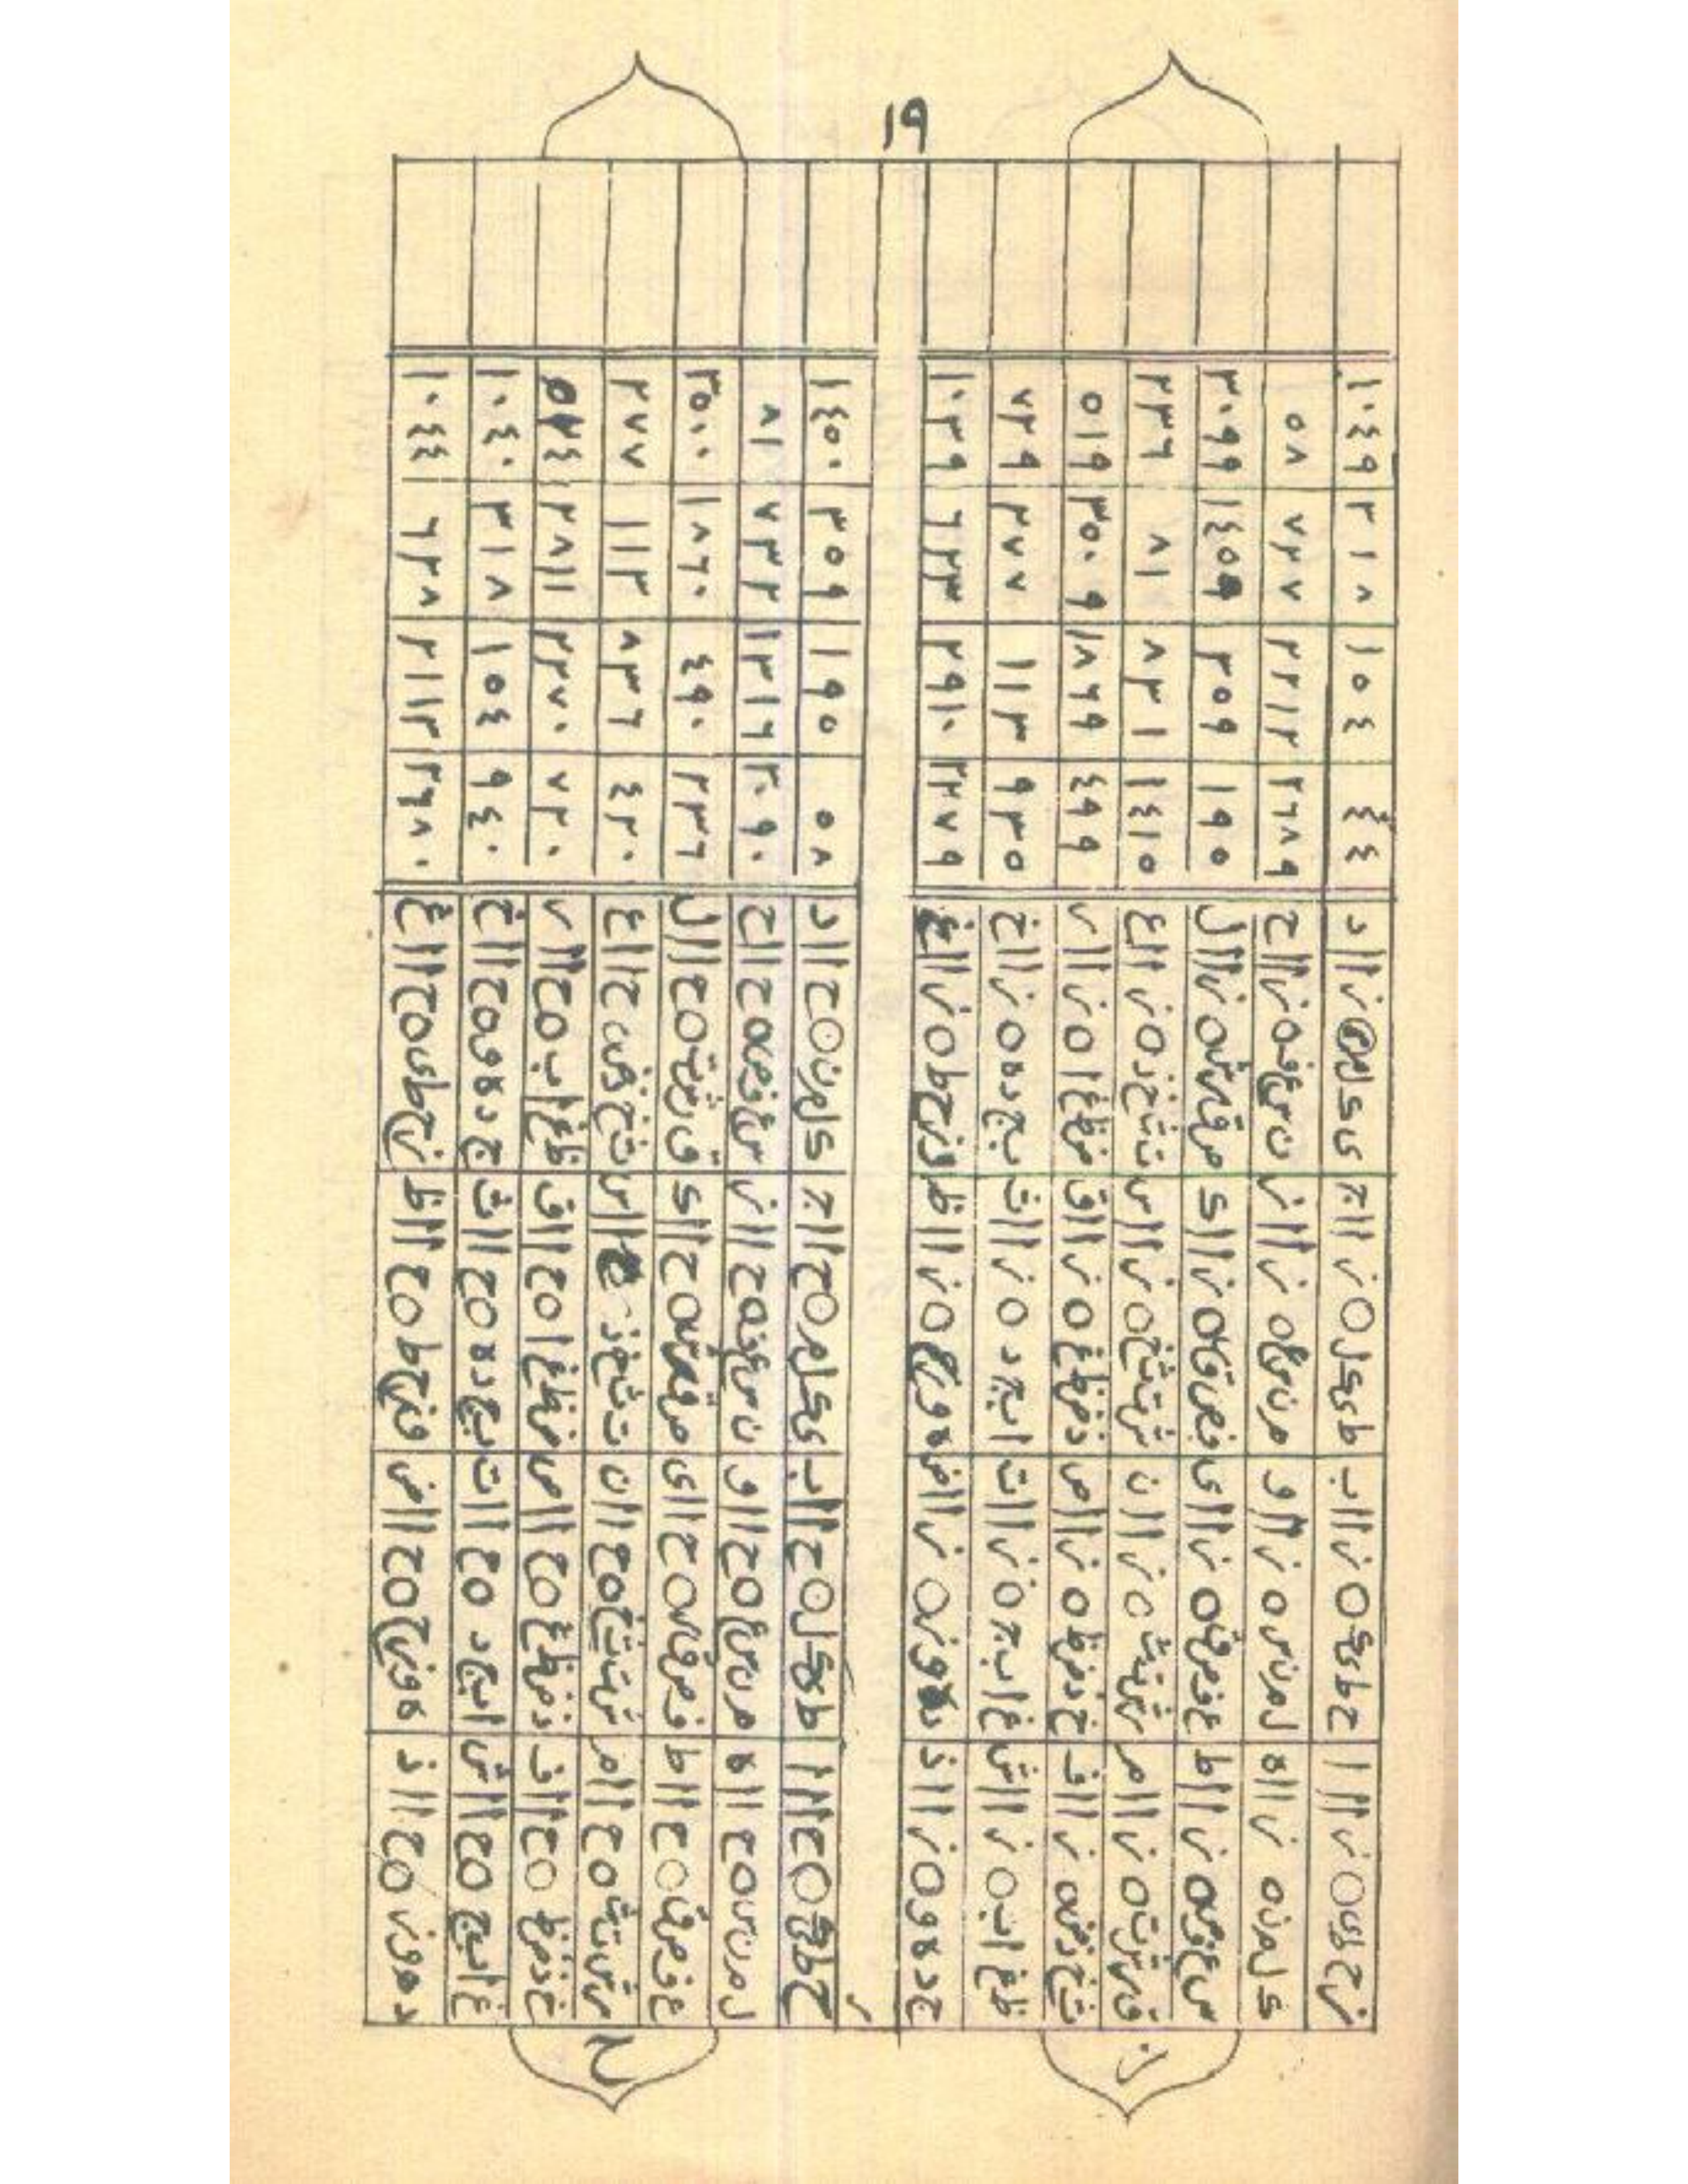 ١٩
ز
زحطى ٥ ز ااا حطىك ٥ ز ااب طىكل ٥ ز ااج ىكلم ٥ ز ااد ٤٤ ١٠٥٤ ٢١٨ ١٠٤٩
كلمن ٥ ز ااه لمنس ٥ ز ااو منسع ٥ ز ااز نسعف ٥ ز ااح ٢٦٨٩ ٢٢١٢ ٧٢٧ ٥٨
سعفص ٥ ز ااط عفصق ٥ ز ااى فصقر ٥ ز ااك صقرش ٥ ز اال ١٩٥ ٢٥٩ ١٤٥٩ ٢٠٩٩
قرشت ٥ ز اام رشتث ٥ ز اان شتثخ ٥ ز ااس تثخذ ٥ ز ااع ١٤١٥ ٨٢١ ٨١ ٢٣٦
ثخذض ٥ ز ااف خذضظ ٥ ز ااص ذضظغ ٥ ز ااق ضظغا ٥ ز اار ٤٩٩ ١٨٦٩ ٢٥٠٩ ٥١٩
ظغاب ٥ ز ااش غابج ٥ ز اات ابجد ٥ ز ااث بجده ٥ ز ااخ ٩٢٥ ١١٢ ٢٧٧ ٧٢٩
جدهو ٥ ز ااذ دهوز ٥ ز ااض هوزح ٥ ز ااظ وزحط ٥ ز ااغ ٢٢٧٩ ٢٩١٠ ٦٢٣ ١٠٢٩
ح
حطىك ٥ ح ااا طىكل ٥ ح ااب ىكلم ٥ ح ااج كلمن ٥ ح ااد ٥٨ ١٩٥ ٢٥٩ ١٤٥٠
لمنس ٥ ح ااه منسع ٥ ح ااو نسعف ٥ ح ااز سعفص ٥ ح ااح ٢٠٩٠ ١٢١٦ ٧٣٢ ٨١
عفصق ٥ ح ااط فصقر ٥ ح ااى صقرش ٥ ح ااك قرشت ٥ ح اال ٢٣٦ ٤٩٠ ١٨٦٠ ٢٥٠٠
رشتث ٥ ح اام شتثخ ٥ ح اان تثخذ ااس ثخذض ٥ ح ااع ٤٢٠ ٨٣٦ ١١٢ ٢٧٧
خذضظ ٥ ح ااف ذضظغ ٥ ح ااص ضظغا ٥ ح ااق ظغاب ٥ ح اار ٧٢٠ ٢٢٧٠ ٢٨١١
غابج ٥ ح ااش ابجد ٥ ح اات بجده ٥ ح ااث جدهو ٥ ح ااخ ٩٤٠ ١٠٥٤ ٣١٨ ١٠٤٠
دهوز ٥ ح ااذ هوزح ٥ ح ااض وزحط ٥ ح ااظ زحطى ٥ ح ااغ ٢٩٨٠ ٢١١٢ ٦٢٨ ١٠٤٤